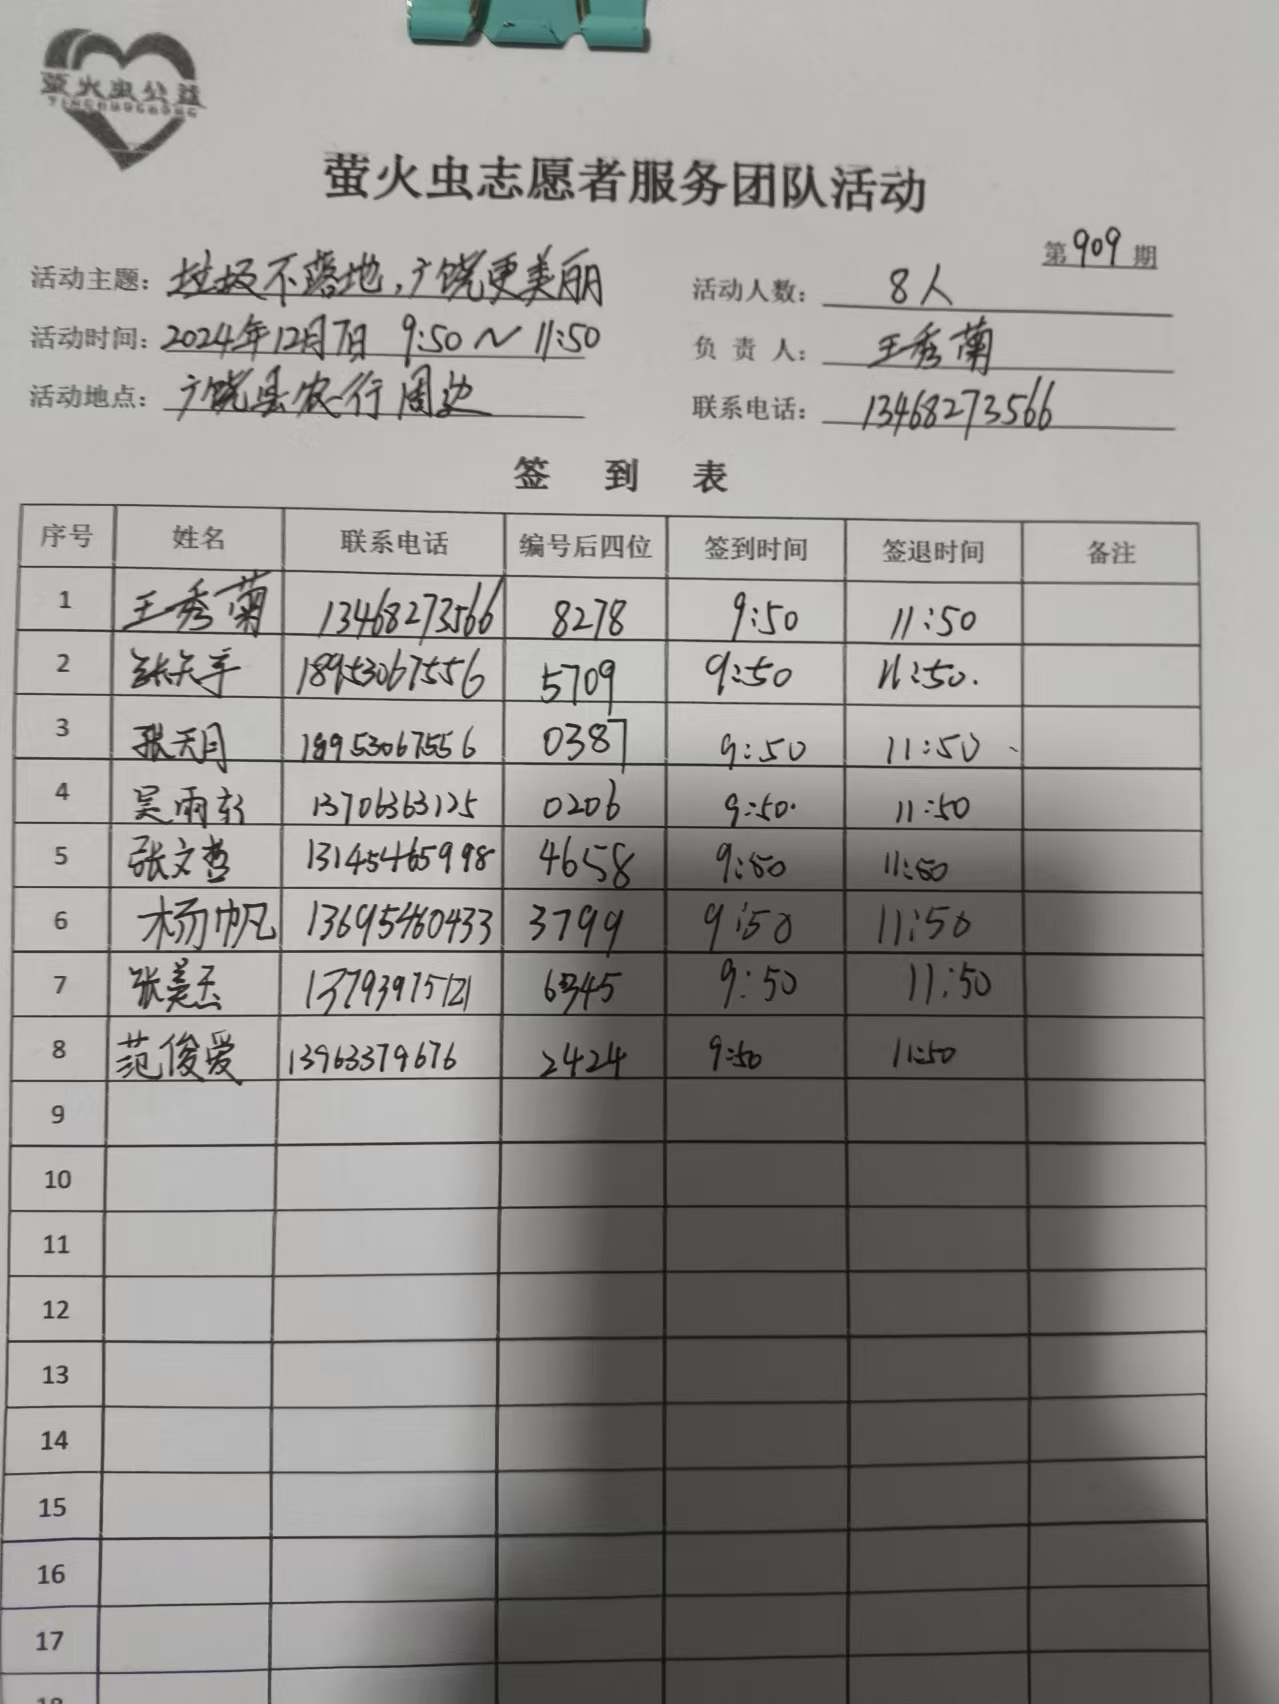 萤火虫公益
YINGHUOCHONG
萤火虫志愿者服务团队活动
第909期
活动主题：垃圾不落地，广饶更美丽 活动人数：8人
活动时间：2024年12月7日 9:50～11:50 负责人：王秀菊
活动地点：广饶县农行周边 联系电话：13468273566
签到表
序号 姓名 联系电话 编号后四位 签到时间 签退时间 备注
1 王秀菊 13468273566 8278 9:50 11:50
2 张天宇 18953067556 5709 9:50 11:50.
3 张天月 18953067556 0387 9:50 11:50
4 吴雨轩 13706363125 0206 9:50. 11:50
5 张文哲 13145465998 4658 9:50 11:50
6 杨帆 13695460433 3799 9:50 11:50
7 张美玉 13793975121 6345 9:50 11:50
8 范俊爱 13963379676 2424 9:50 11:50
9
10
11
12
13
14
15
16
17
18